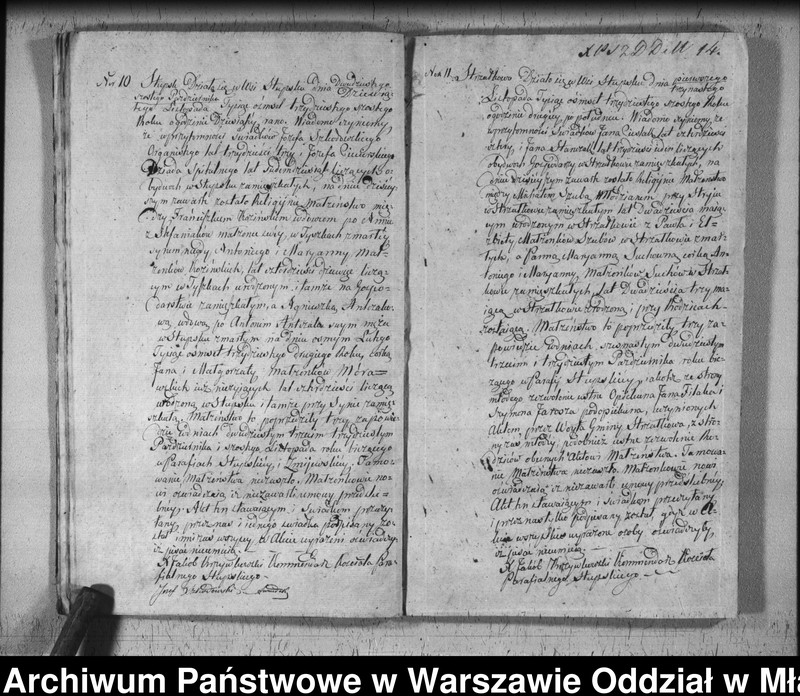 Nro 10 Stupsk. Działo się w Wsi Stupsku dnia
Listopada Tysiąc osmset trzydziestego szostego
Roku o godzinie Dziewiątej rano. Wiadomo czyniemy,
że w przytomności Świadków Józefa
Organisty lat trzydzieści trzy, i Józefa
Dziada Szpitalnego lat liczących o
bydwuch w Stupsku zamieszkałych, na dniu dzisiey
szym zawarte zostało Religijne Małżeństwo mię
dzy Franciszkiem Rozińskim wdowcem po Annie
z małżonce swey, w Tyszkach zmarłey
synem niegdy Antoniego i Maryanny Mał=
żonków Rozińskich, lat czterdzieści liczą
cym w Tyszkach urodzonym i tamże na Gospo
darstwie zamieszkałym, a Agnieszką
wdową po Antonim swym mężu
w Stupsku zmarłym na dniu osmym Lutego
Tysiąc osmset trzydziestego drugiego Roku, córką
Jana i Małgorzaty Małżonków Mora=
wskich już nieżyjących lat czterdzieści liczącą
urodzoną w Stupsku i tamże przy Synie zamie
szkałą. Małżeństwo to poprzedziły trzy zapowie
dzie w dniach dwudziestym trzecim trzydziestym
Października i szostego Listopada roku bieżącego
w Parafiach Stupskiey, i Żmijewskiey. Tamo=
wanie Małżeństwa niezaszło. Małżonkowie no=
wi oświadczają iż niezawarli umowy przedślu=
bney. Akt ten stawaiącym i Świadkom przeczy=
tany, przez nas i iednego świadka podpisany zo=
stał inni zaś wszyscy w Akcie wyrażeni oświadczyli
iż pisać nieumieią.
X Jakób Krzywkowski Kommendarz Kościoła Para
fialnego Stupskiego.
XPS2DDiU 14.
Nro 11. Strzałkowo Działo się w Wsi Stupsku dnia
Listopada Tysiąc osmset trzydziestego szostego Roku
o godzinie drugiey, po południu. Wiadomo czyniemy, że
w przytomności Świadków Jana lat czterdzieści
cztery, i Jana lat trzydzieści ieden liczących
obydwuch Gospodarzy w Strzałkowie zamieszkałych, na
dniu dzisieyszym zawarte zostało Religijne Małżeństwo
między Michałem Szubą Młodzianem przy Stryiu
w Strzałkowie zamieszkałym lat Dwadzieścia mają
cym urodzonym w Strzałkowie z Pawła i El=
żbiety Małżonków Szubów w Strzałkowie zmar=
łych, a Panną Maryanną Suchowną córką An=
toniego i Maryanny, Małżonków Suchów w Strzał
kowie zamieszkałych, lat Dwadzieścia trzy ma
iącą w Strzałkowie zrodzoną i przy Rodzicach
zostaiącą. Małżeństwo to poprzedziły trzy za=
powiedzie w dniach szesnastym dwudziestym
trzecim i trzydziestym Października roku bie=
żącego w Parafii Stupskiey, jakoż ze strony
młodego zezwolenie ustne Opiekuna Jana i
Szymona podopiekuna, uczynionych
Aktem przez Wójta Gminy Strzałkowa, z stro=
ny zaś młodey, podobnież ustne zezwolenie Ro=
dziców obecnych Aktowi Małżeństwa. Tamowa=
nie Małżeństwa niezaszło. Małżonkowie nowi
oświadczają iż niezawarli umowy przedślubney,
Akt ten stawaiącym i Świadkom przeczytany
i przez nas tylko podpisany został, gdyż w Ak=
cie wszystkie wyrażone osoby oświadczyły,
iż pisać nieumieią.
X Jakób Krzywkowski Kommendarz Kościoła
Parafialnego Stupskiego.
Archiwum Państwowe w Warszawie Oddział w Mł